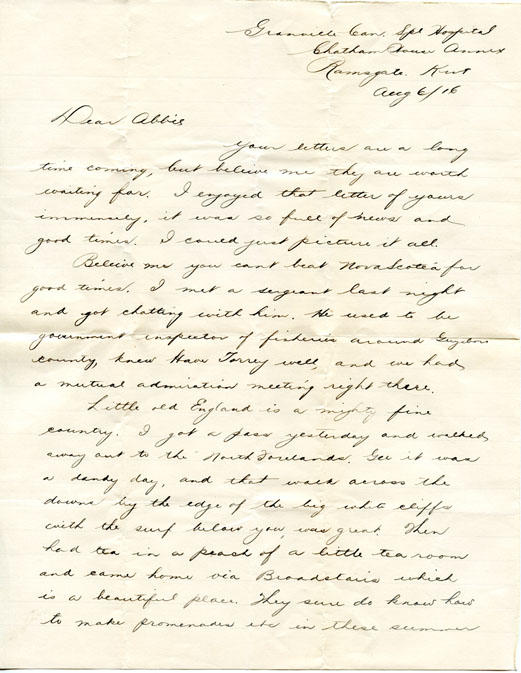 Granville Can. Spl Hospital
Chatham House Annex
Ramsgate. Kent
Aug 6/16
Dear Abbie
Your letters are a long
time coming, but beleive me they are worth
waiting for. I enjoyed that letter of yours
immensely, it was so full of news and
good times. I could just picture it all.
Beleive me you cant beat Nova Scotia for
good times. I met a sergeant last night
and got chatting with him. He used to be
government inspector of fisheries around Guysboro
county, knew Have Torrey well, and we had
a mutual admiration meeting right there.
Little old England is a mighty fine
country. I got a pass yesterday and walked
away out to the North Forelands. Gee it was
a dandy day, and that walk across the
downs by the edge of the big white cliffs
with the surf below you, was great. Then
had tea in a peach of a little tea room
and came home via Broadstairs which
is a beautiful place. They sure do know how
to make promenades etc in these summer